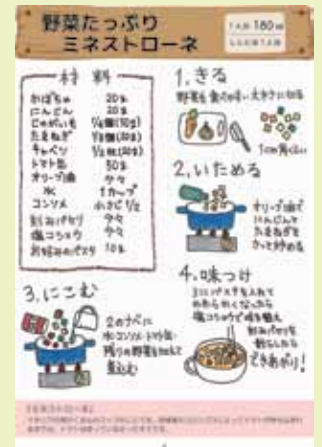 野菜たっぷり
ミネストローネ
1人分 180
材料
かぼちゃ 20g
にんじん 20g
じゃがいも 1/6個(10g)
たまねぎ 1/8個(20g)
キャベツ 1/2枚(20g)
トマト缶 50g
オリーブ油 少々
水 1カップ
コンソメ 小さじ1/2
刻みパセリ 少々
塩コショウ 少々
お好みのパスタ 10g
1.きる
野菜を食べやすい大きさに切る
1cm角くらい
2.いためる
オリーブ油で
にんじんと
たまねぎを
さっと炒める
3.にこむ
2のナベに
水・コンソメ・トマト缶・
残りの野菜を加えて
煮込む
4.味つけ
3にパスタを入れて
やわらかくなったら
塩コショウで味を整え
刻みパセリを
散らしたら
できあがり!